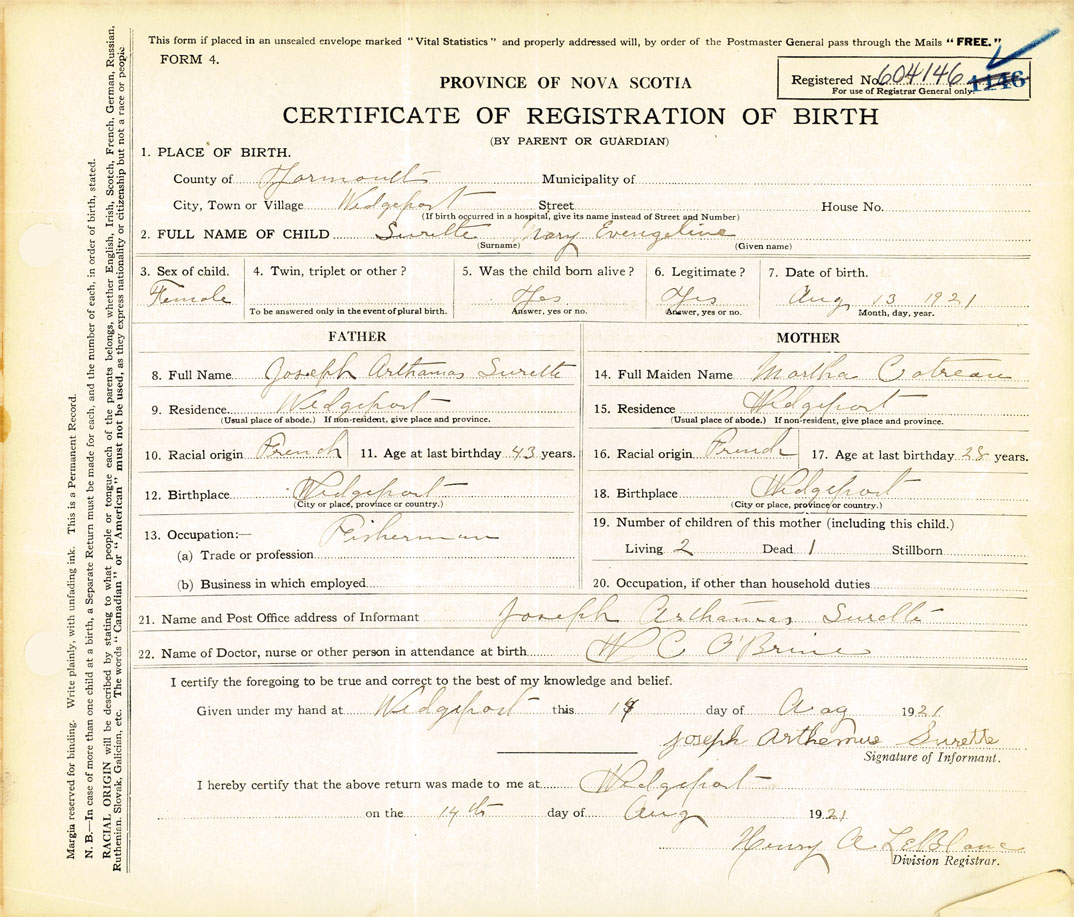 This form if placed in an unsealed envelope marked "Vital Statistics" and properly addressed will, by order of the Postmaster General pass through the Mails "FREE."
FORM 4.
PROVINCE OF NOVA SCOTIA
Registered No. 604146 1146
For use of Registrar General only.
CERTIFICATE OF REGISTRATION OF BIRTH
(BY PARENT OR GUARDIAN)
1. PLACE OF BIRTH.
County of Yarmouth Municipality of
City, Town or Village Wedgeport Street House No.
(If birth occurred in a hospital, give its name instead of Street and Number)
2. FULL NAME OF CHILD Surette Mary Evengeline
(Surname) (Given name)
3. Sex of child. 4. Twin, triplet or other? 5. Was the child born alive? 6. Legitimate? 7. Date of birth.
Female Yes Yes Aug 13 1921
To be answered only in the event of plural birth. Answer, yes or no. Answer, yes or no. Month, day, year.
FATHER MOTHER
8. Full Name Joseph Arthamas Surette 14. Full Maiden Name Martha Cotreau
9. Residence Wedgeport 15. Residence Wedgeport
(Usual place of abode.) If non-resident, give place and province. (Usual place of abode.) If non-resident, give place and province.
10. Racial origin French 11. Age at last birthday 43 years. 16. Racial origin French 17. Age at last birthday 28 years.
12. Birthplace Wedgeport 18. Birthplace Wedgeport
(City or place, province or country.) (City or place, province or country.)
13. Occupation:— Fisherman 19. Number of children of this mother (including this child.)
(a) Trade or profession Living 2 Dead 1 Stillborn
(b) Business in which employed 20. Occupation, if other than household duties
21. Name and Post Office address of Informant Joseph Arthamas Surette
22. Name of Doctor, nurse or other person in attendance at birth W C O'Brine
I certify the foregoing to be true and correct to the best of my knowledge and belief.
Given under my hand at Wedgeport this 14 day of Aug 1921
Joseph Arthemus Surette
Signature of Informant.
I hereby certify that the above return was made to me at Wedgeport
on the 14th day of Aug 1921
Henry A LeBlanc
Division Registrar.
Margin reserved for binding. Write plainly, with unfading ink. This is a Permanent Record.
N. B.—In case of more than one child at a birth, a Separate Return must be made for each, and the number of each, in order of birth, stated.
RACIAL ORIGIN will be described by stating to what people or tongue each of the parents belongs, whether English, Irish, Scotch, French, German, Russian,
Ruthenian, Slovak, Galician, etc. The words "Canadian" or "American" must not be used, as they express nationality or citizenship but not a race or people